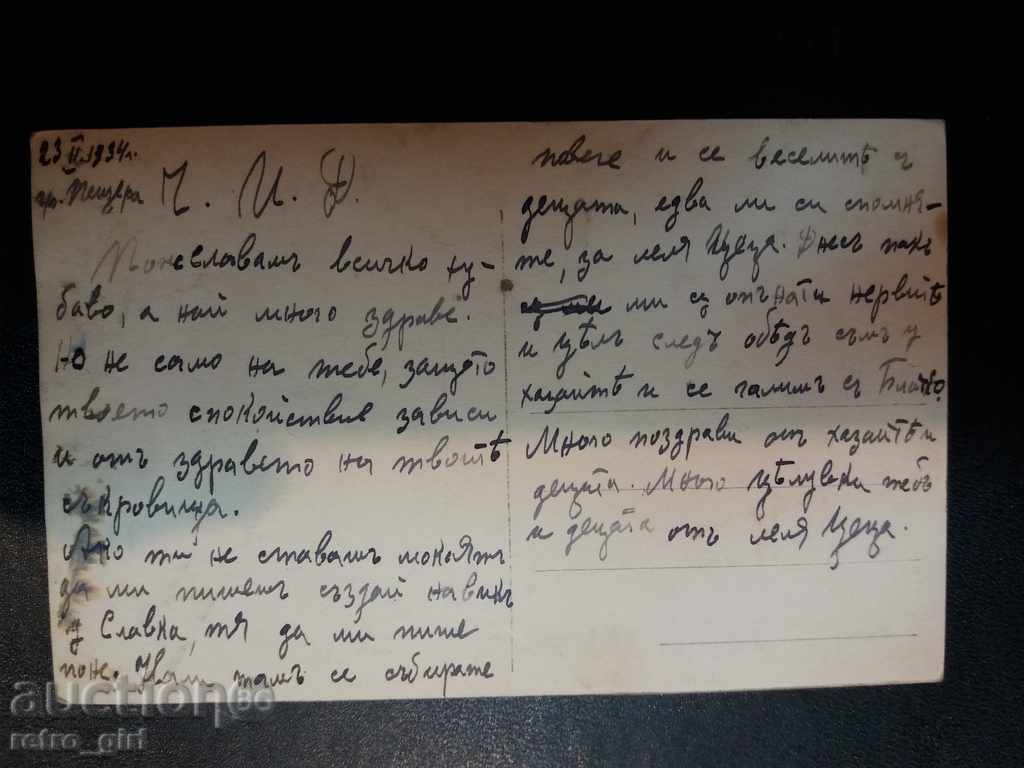 23 II 1934 г.
гр. Пещера
Ч. И. Д.
Пожелавамъ всичко ху-
баво, а най много здраве.
Но не само на тебе, защото
твоето спокойствие зависи
и отъ здравето на твоитѣ
съкровища.
Ако ти не ставашъ
да ми пишешъ създай навикъ
у Славка, тя да ми пише
поне. тамъ се събирате
повече и се веселитѣ съ
децата, едва ли си спомня-
те, за леля Цеца. Днесъ пакъ
ми са опънати нервитѣ
и цѣлъ следъ обѣдъ съмъ у
хазаитѣ и се галимъ съ
Много поздрави отъ хазаитѣ и
децата. Много цѣлувки тебъ
и децата отъ леля Цеца.
auction86
retro_girl